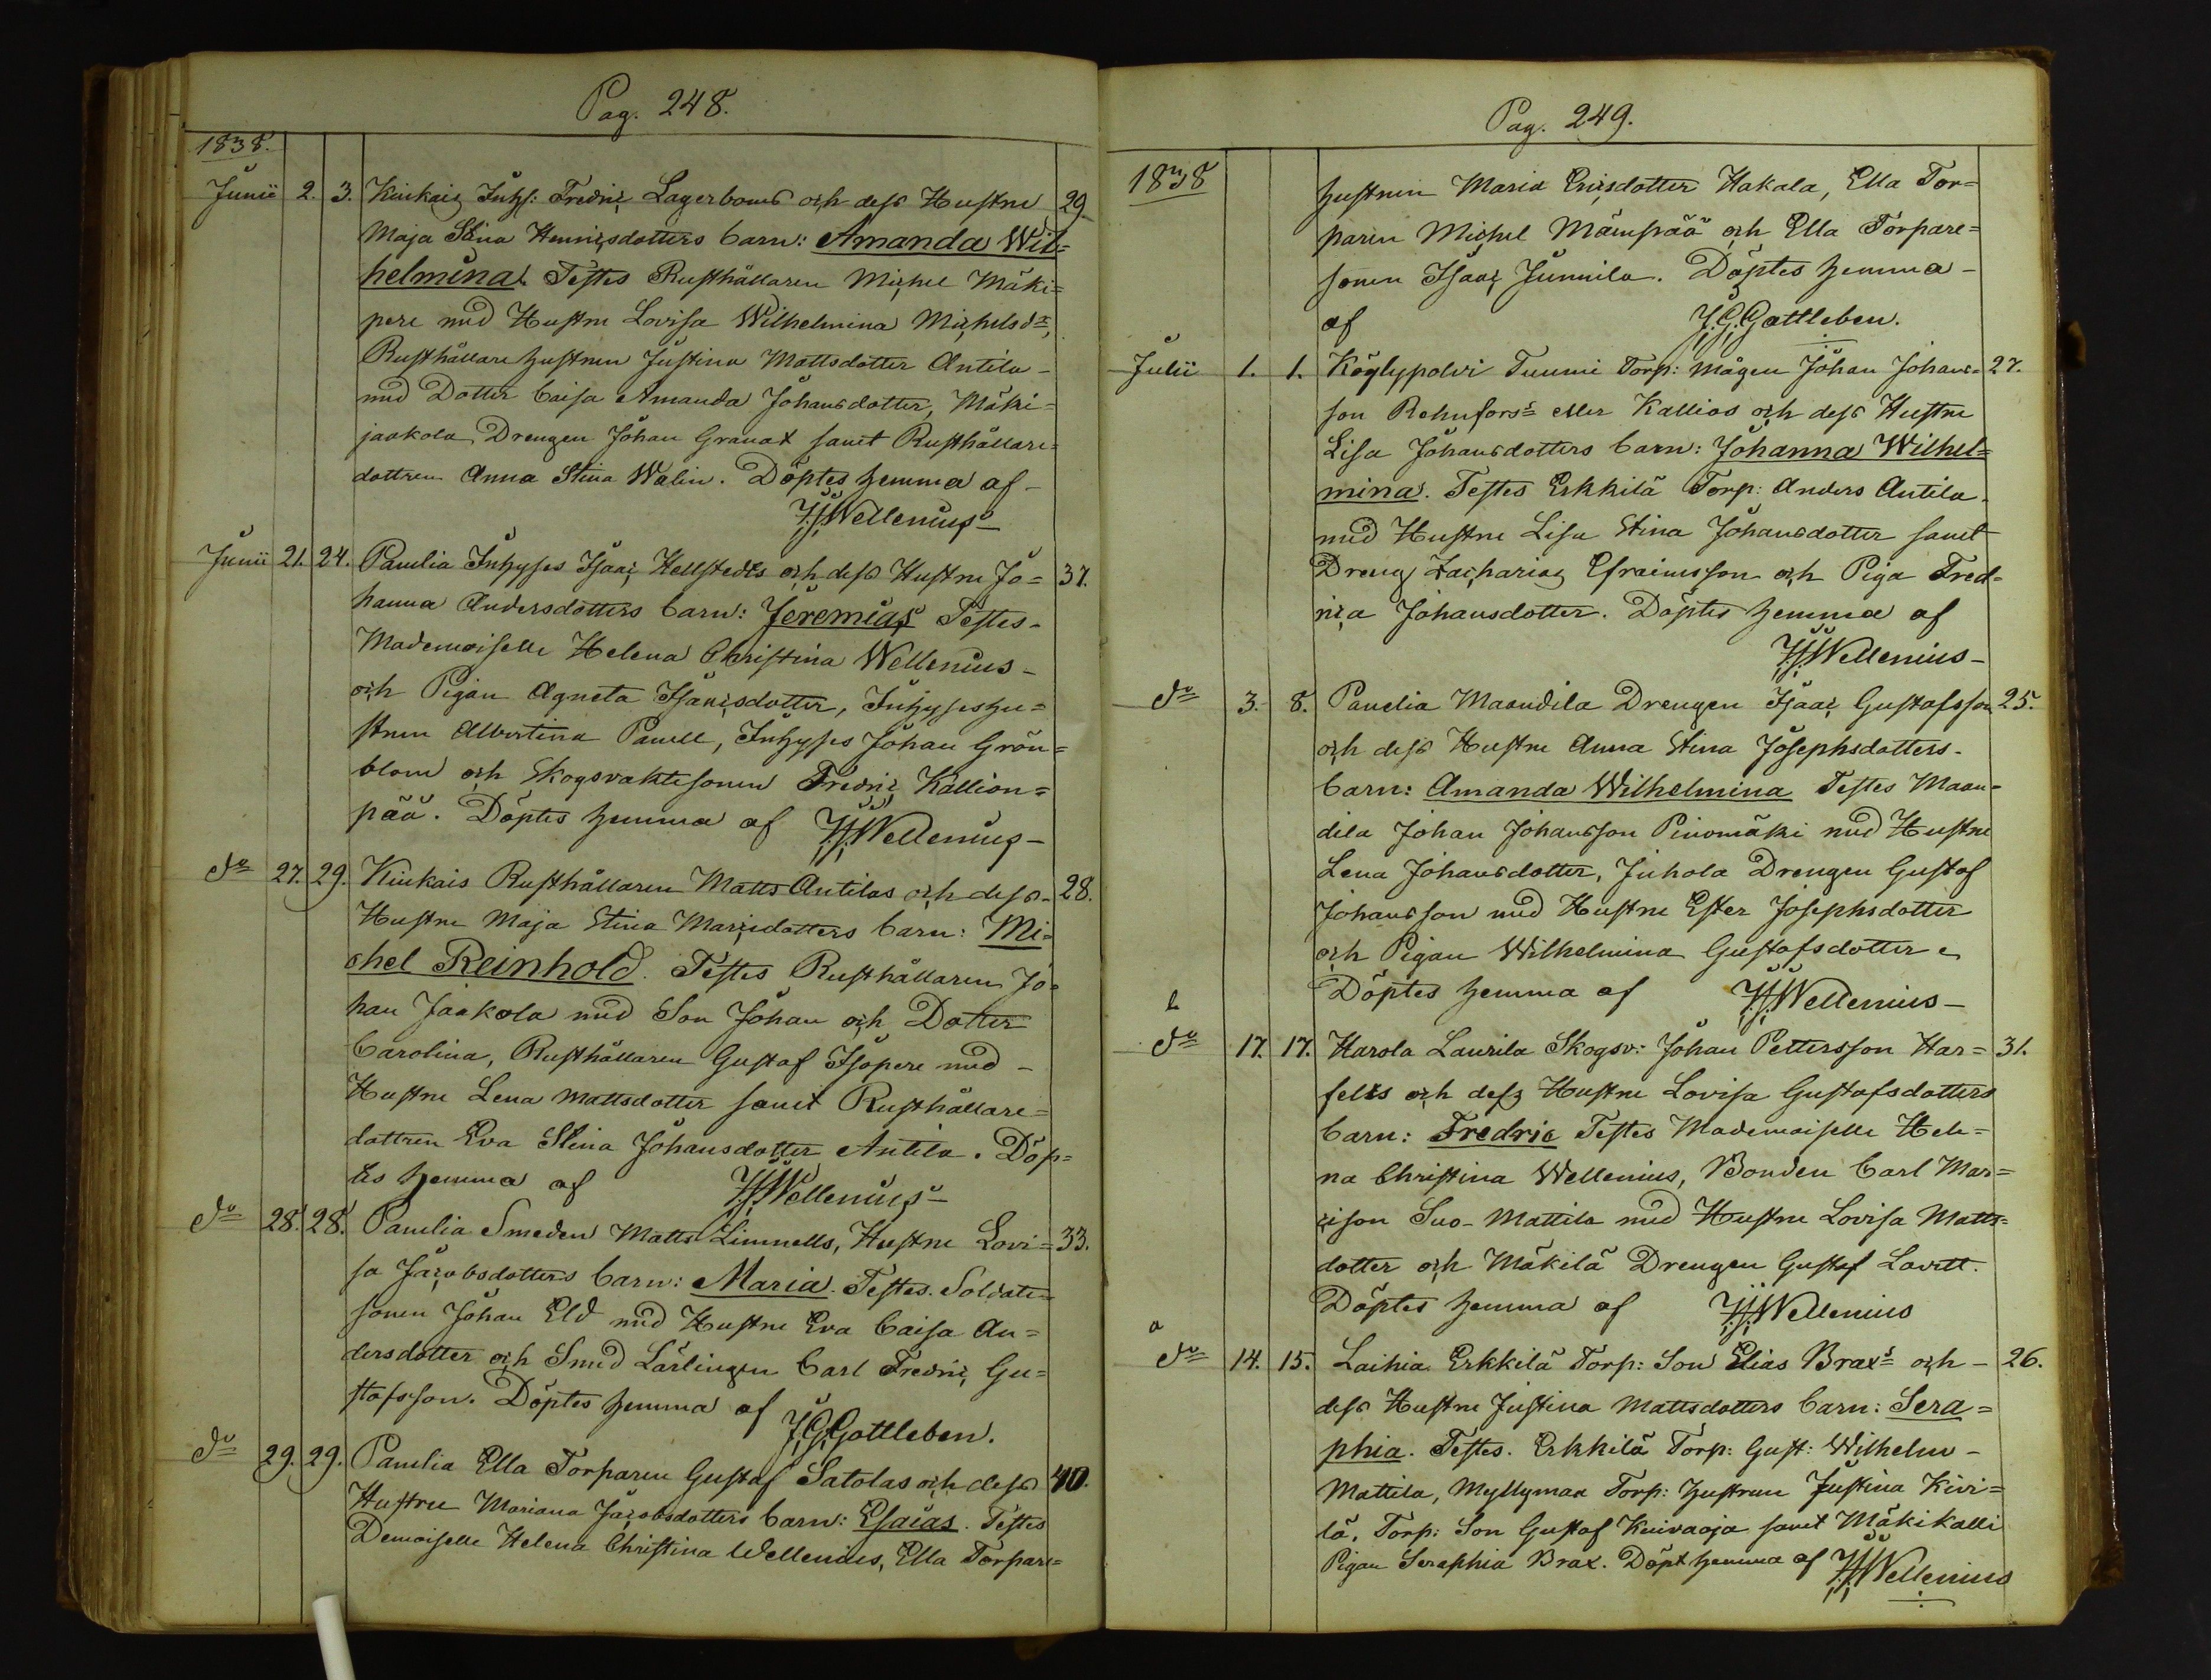 Pag. 248.
1838.
Junii 2. 3. Kiukais Inhs: Fredric Lagerboms och dess Hustru 29.
Maja Stina Henricsdotters barn: Amanda Wil=
helmina. Testes Rusthållaren Michel Mäki=
pere med Hustru Lovisa Wilhelmina Michelsdr,
Rusthållare hustrun Justina Mattsdotter Antila
med Dotter Caisa Amanda Johansdotter, Mäki=
jaakola Drengen Johan Granat samt Rusthållare=
dottren Anna Stina Walin. Döptes hemma af
Wellenius
Junii 21. 24. Panelia Inhyses Isaac Hellstedts och dess Hustru Jo= 37.
hanna Andersdotters barn: Jeremias Testes
Mademoiselle Helena Christina Wellenius
och Pigan Agneta Isaacsdotter, Inhyseshu=
strun Albertina Panell, Inhyses Johan Grön=
blom och Skogsvaktesonen Fredric Kallion=
pää. Döptes hemma af Wellenius
do 27. 29. Kiukais Rusthållaren Matts Antilas och dess 28.
Hustru Maja Stina Marcidotters barn: Mi=
chel Reinhold. Testes Rusthållaren Jo=
han Jaakola med Son Johan och Dotter
Carolina, Rusthållaren Gustaf Isopere med
Hustru Lena Mattsdotter samt Rusthållare=
dottren Eva Stina Johansdotter Antila. Döp=
tes hemma af Wellenius
do 28. 28. Panelia Smeden Matts Limnells, Hustru Lovi= 33.
sa Jacobsdotters barn: Maria. Testes. Soldate=
sonen Johan Eld med Hustru Eva Caisa An=
dersdotter och Smed Lärlingen Carl Fredric Gu=
stafsson. Döptes hemma af J.G.Gottleben.
do 29. 29. Panelia Ella Torparen Gustaf Satolas och dess 40.
Hustru Mariana Jacobsdotters barn: Esaias. Testes
Demoiselle Helena Christina Wellenius, Ella Torpare=
Pag. 249.
1838
hustrun Maria Ericsdotter Hakala, Ella Tor=
paren Michel Mämpää och Ella Torpare=
sonen Isaac Junnila. Döptes hemma
af J.G.Gottleben.
Julii 1. 1. Köylypolvi Tuumi Torp: mågen Johan Johans= 27.
son Rehnfors eller Kallios och dess Hustru
Lisa Johansdotters barn: Johanna Wilhel=
mina. Testes Erkkilä Torp: Anders Antila
med Hustru Lisa Stina Johansdotter samt
Dreng Zacharias Efraimsson och Piga Fred=
rica Johansdotter. Döptes hemma af
Wellenius
do 3. 8. Panelia Maandila Drengen Isaac Gustafsson 25.
och dess Hustru Anna Stina Josephsdotters
barn: Amanda Wilhelmina Testes Maan=
dila Johan Johansson Pinomäki med Hustru
Lena Johansdotter, Juhola Drengen Gustaf
Johansson med Hustru Ester Josephsdotter
och Pigan Wilhelmina Gustafsdotter
Döptes hemma af Wellenius
b
do 17. 17. Harola Laurila Skogsv: Johan Pettersson Har= 31.
felts och dess Hustru Lovisa Gustafsdotters
barn: Fredric Testes Mademoiselle Hele=
na Christina Wellenius, Bonden Carl Mar=
cison Suo-Mattila med Hustru Lovisa Matts=
dotter och Mäkilä Drengen Gustaf Lovett.
Döptes hemma af Wellenius
a
do 14. 15. Laihia Erkkilä Torp: Son Elias Brax's och 26.
dess Hustru Justina Mattsdotters barn: Sera=
phia. Testes. Erkkilä Torp: Gust: Wilhelm
Mattila, Myllymaa Torp: hustrun Justina Kivi=
lä, Torp: Son Gustaf Kuivaoja samt Mäkikalli
Pigan Seraphia Brax. Döpt hemma af Wellenius